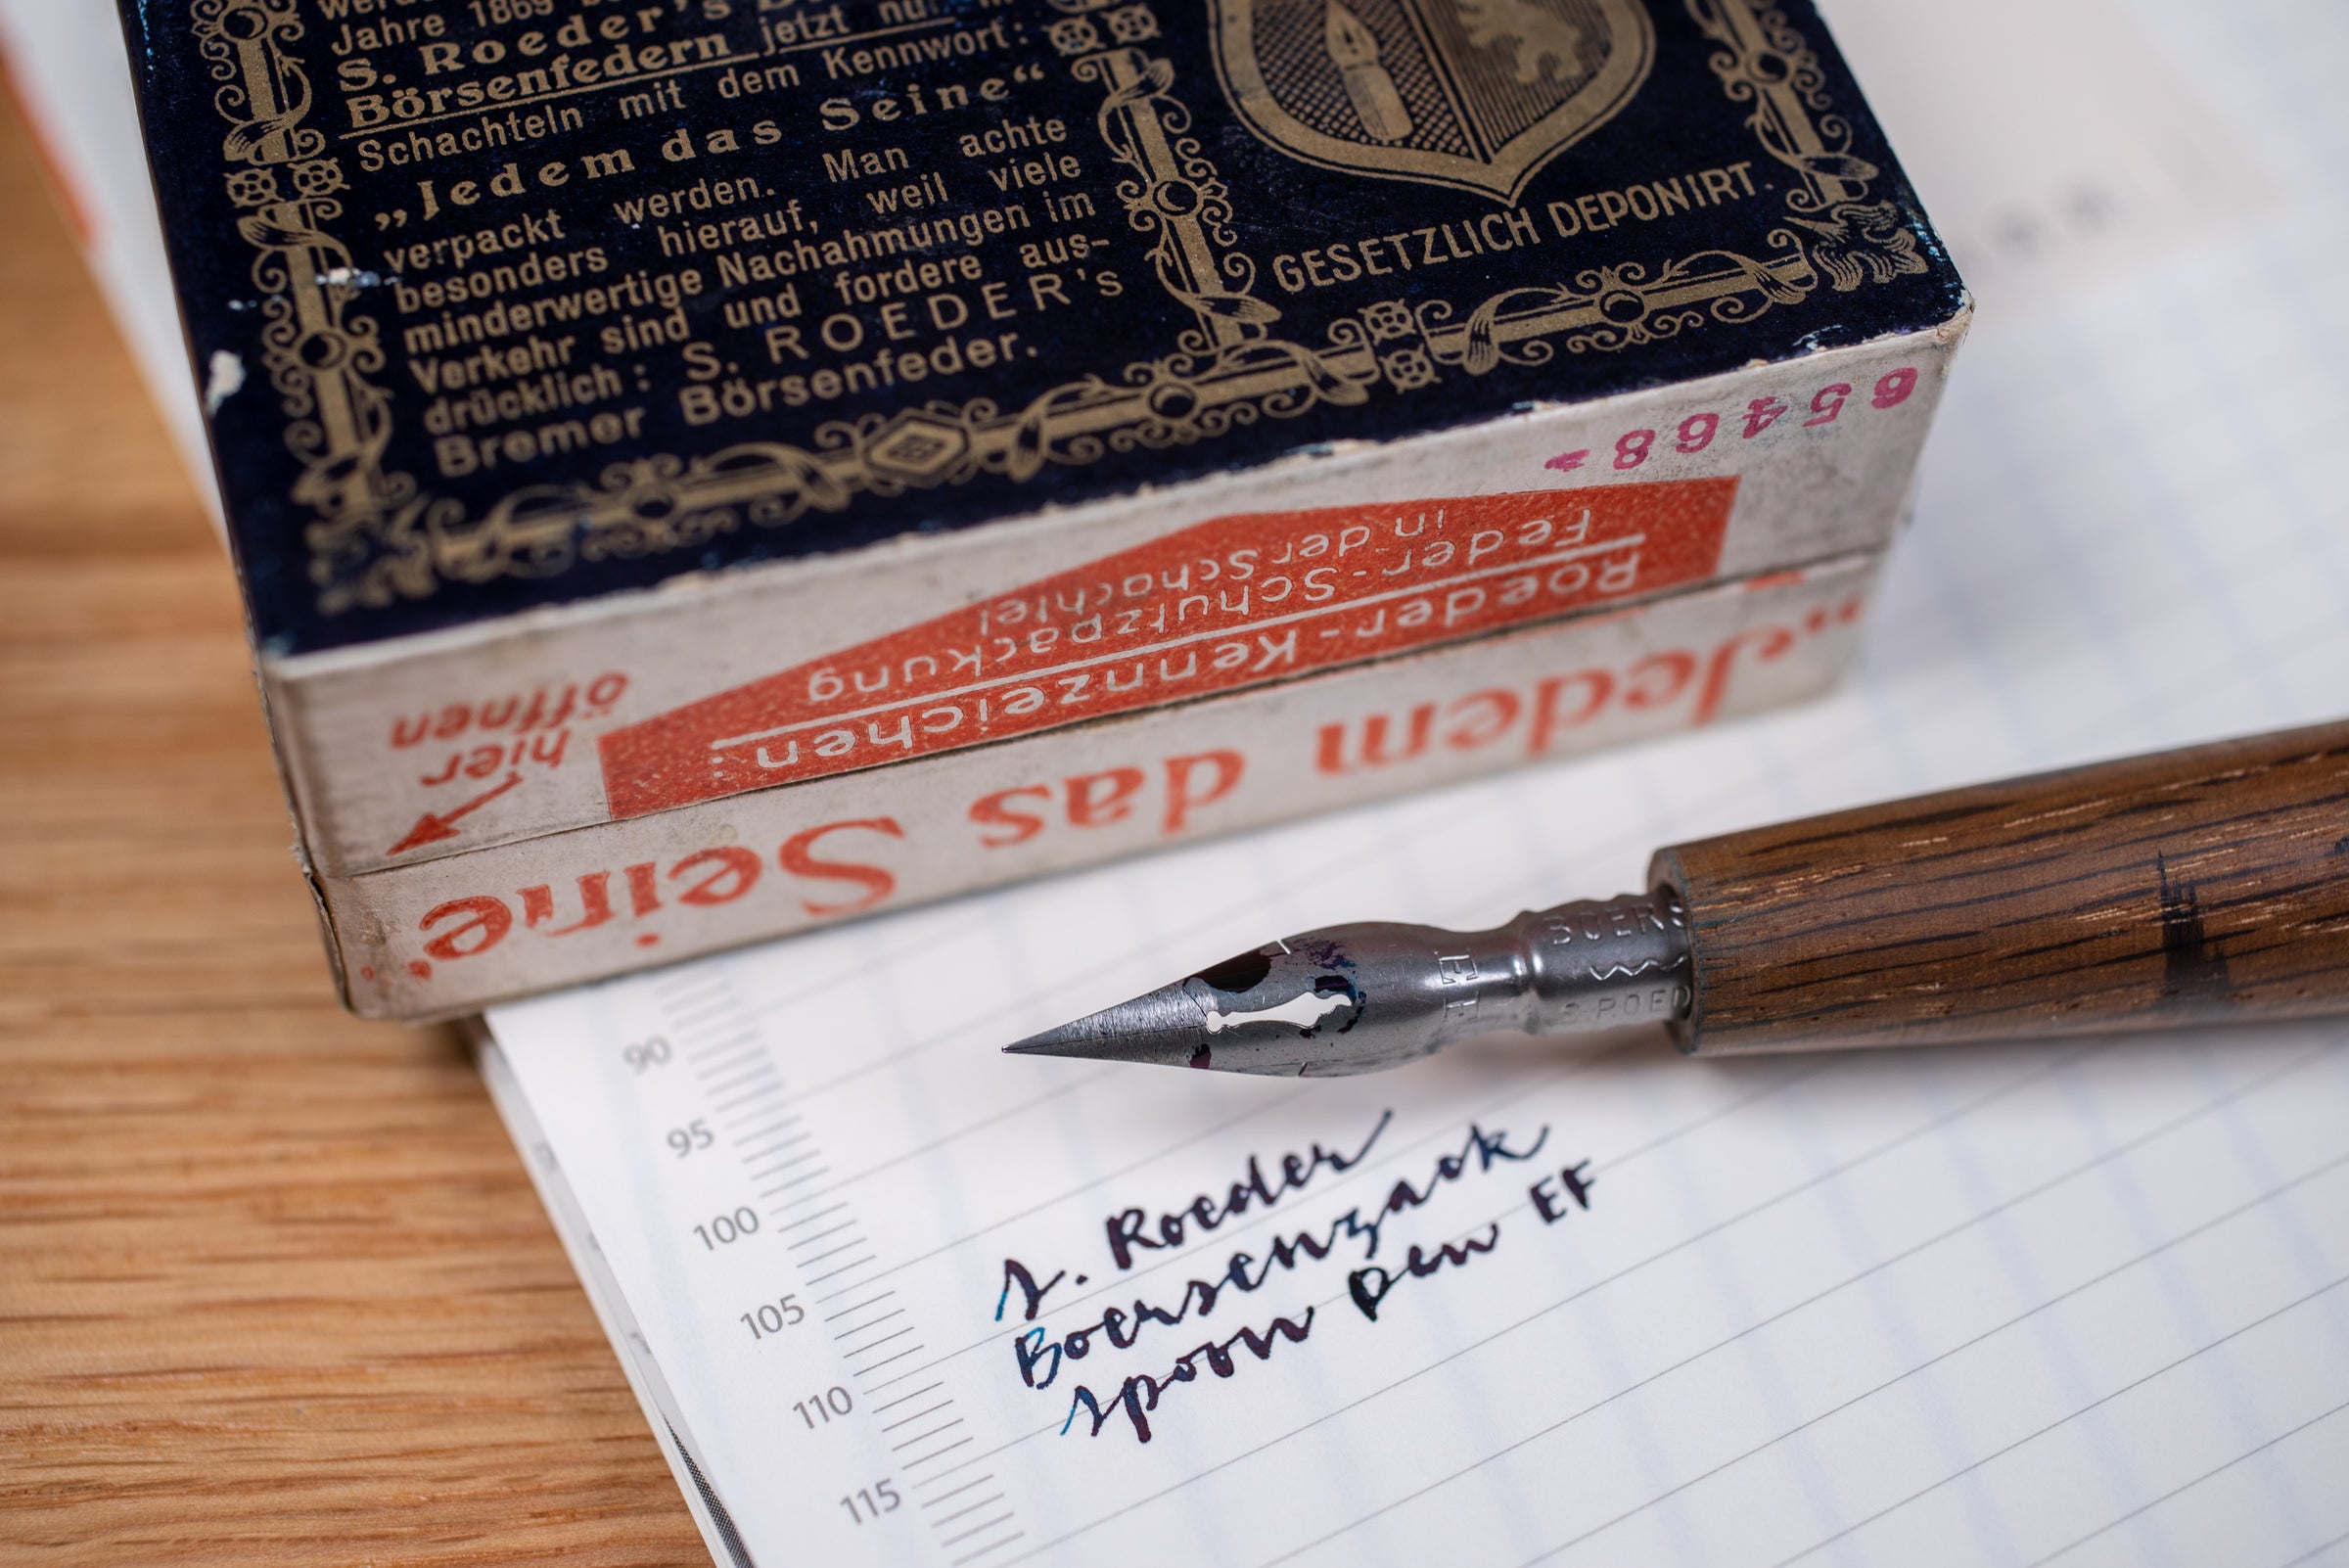 Jahre 1869
S. Roeder's
Börsenfedern jetzt nur
Schachteln mit dem Kennwort:
„Jedem das Seine“
verpackt werden. Man achte
besonders hierauf, weil viele
minderwertige Nachahmungen im
Verkehr sind und fordere aus-
drücklich: S. ROEDER's
Bremer Börsenfeder.
GESETZLICH DEPONIRT.
65468
hier
öffnen
Roeder-Kennzeichen:
Feder-Schutzpackung
in der Schachtel
„Jedem das Seine“
BOERS
S. ROED
EF
90
95
100
105
110
115
S. Roeder
Boersenzack
spoon Pen EF